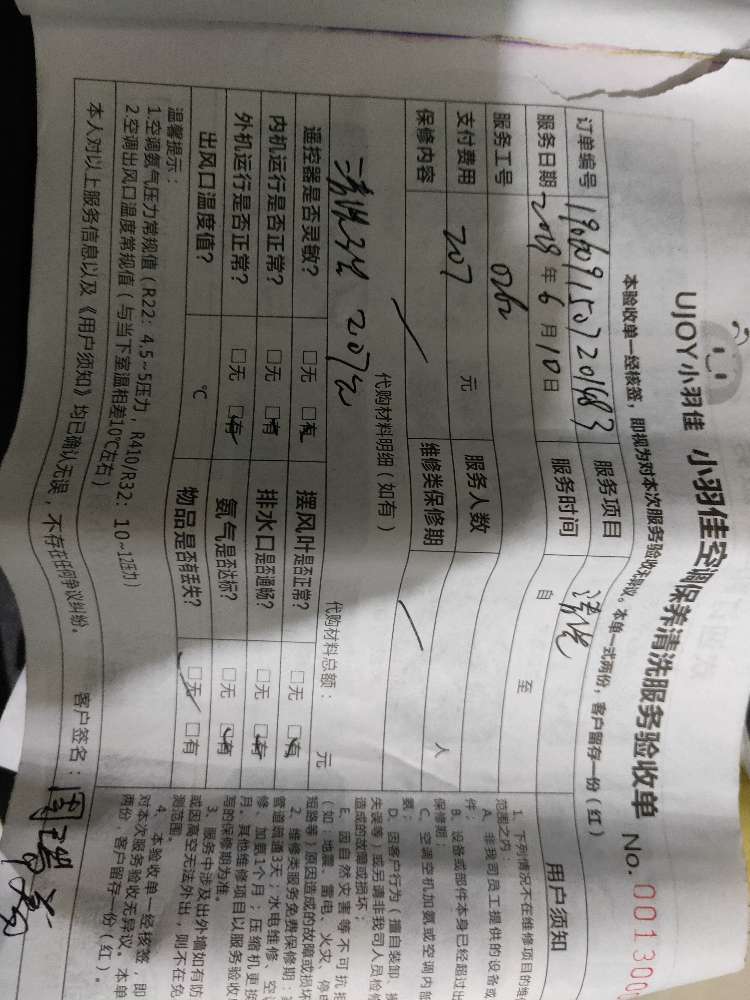 UJOY小羽佳 小羽佳空调保养清洗服务验收单 No. 001300
本验收单一经核签，即视为对本次服务验收无异议。本单一式两份，客户留存一份（红）
订单编号 服务项目 清洗
服务日期 2019年6月10日 服务时间 自 至
服务工号 0262 服务人数 人
支付费用 207 元 维修类保修期
保修内容
代购材料明细（如有） 代购材料总额： 元
207元
遥控器是否灵敏？ □无 □有 摆风叶是否正常？ □无 □有
内机运行是否正常？ □无 □有 排水口是否通畅？ □无 □有
外机运行是否正常？ □无 □有 氨气是否达标？ □无 □有
出风口温度值？ ℃ 物品是否有丢失？ □无 □有
温馨提示：
1.空调氨气压力常规值（R22：4.5~5压力，R410/R32：10~12压力）
2.空调出风口温度常规值（与当下室温相差10℃左右）
本人对以上服务信息以及《用户须知》均已确认无误，不存在任何争议纠纷。 客户签名：
用户须知
1、下列情况不在维修项目的维
范围之内：
A、非我司员工提供的设备或
件；
B、设备或部件本身已经超过出
保修期；
C、空调空机加氨或空调内部
D、因客户行为（擅自装卸、操
失误等）或另请非我司人员检修
造成的故障或损坏；
E、因自然灾害等不可抗拒
（如：地震、雷电、火灾、停电
短路等）原因造成的故障或损坏
2、维修类服务免费保修期：
管道疏通3天；水电维修、空
修、加氨1个月；压缩机更换
月。其他维修项目以服务验收
写的保修期为准。
3、服务中涉及出外墙如有防
或因高空无法外出，则不在免
测范围。
4、本验收单一经核签，即
对本次服务验收无异议。本单
两份，客户留存一份（红）。